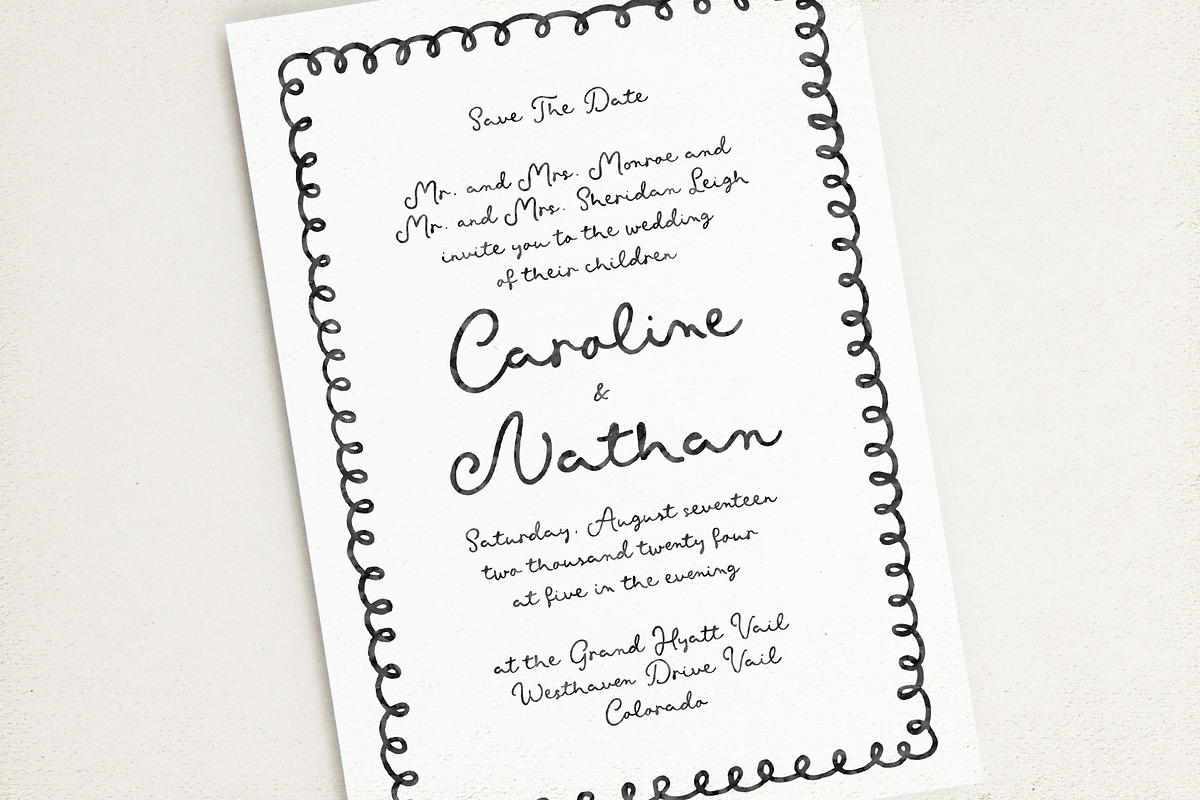 Save The Date
Mr. and Mrs. Monroe and
Mr. and Mrs. Sheridan Leigh
invite you to the wedding
of their children
Caroline
&
Nathan
Saturday, August seventeen
two thousand twenty four
at five in the evening
at the Grand Hyatt Vail
Westhaven Drive Vail
Colorado